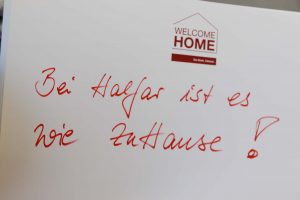 WELCOME
HOME
Bei Halfar ist es
wie zuHause!